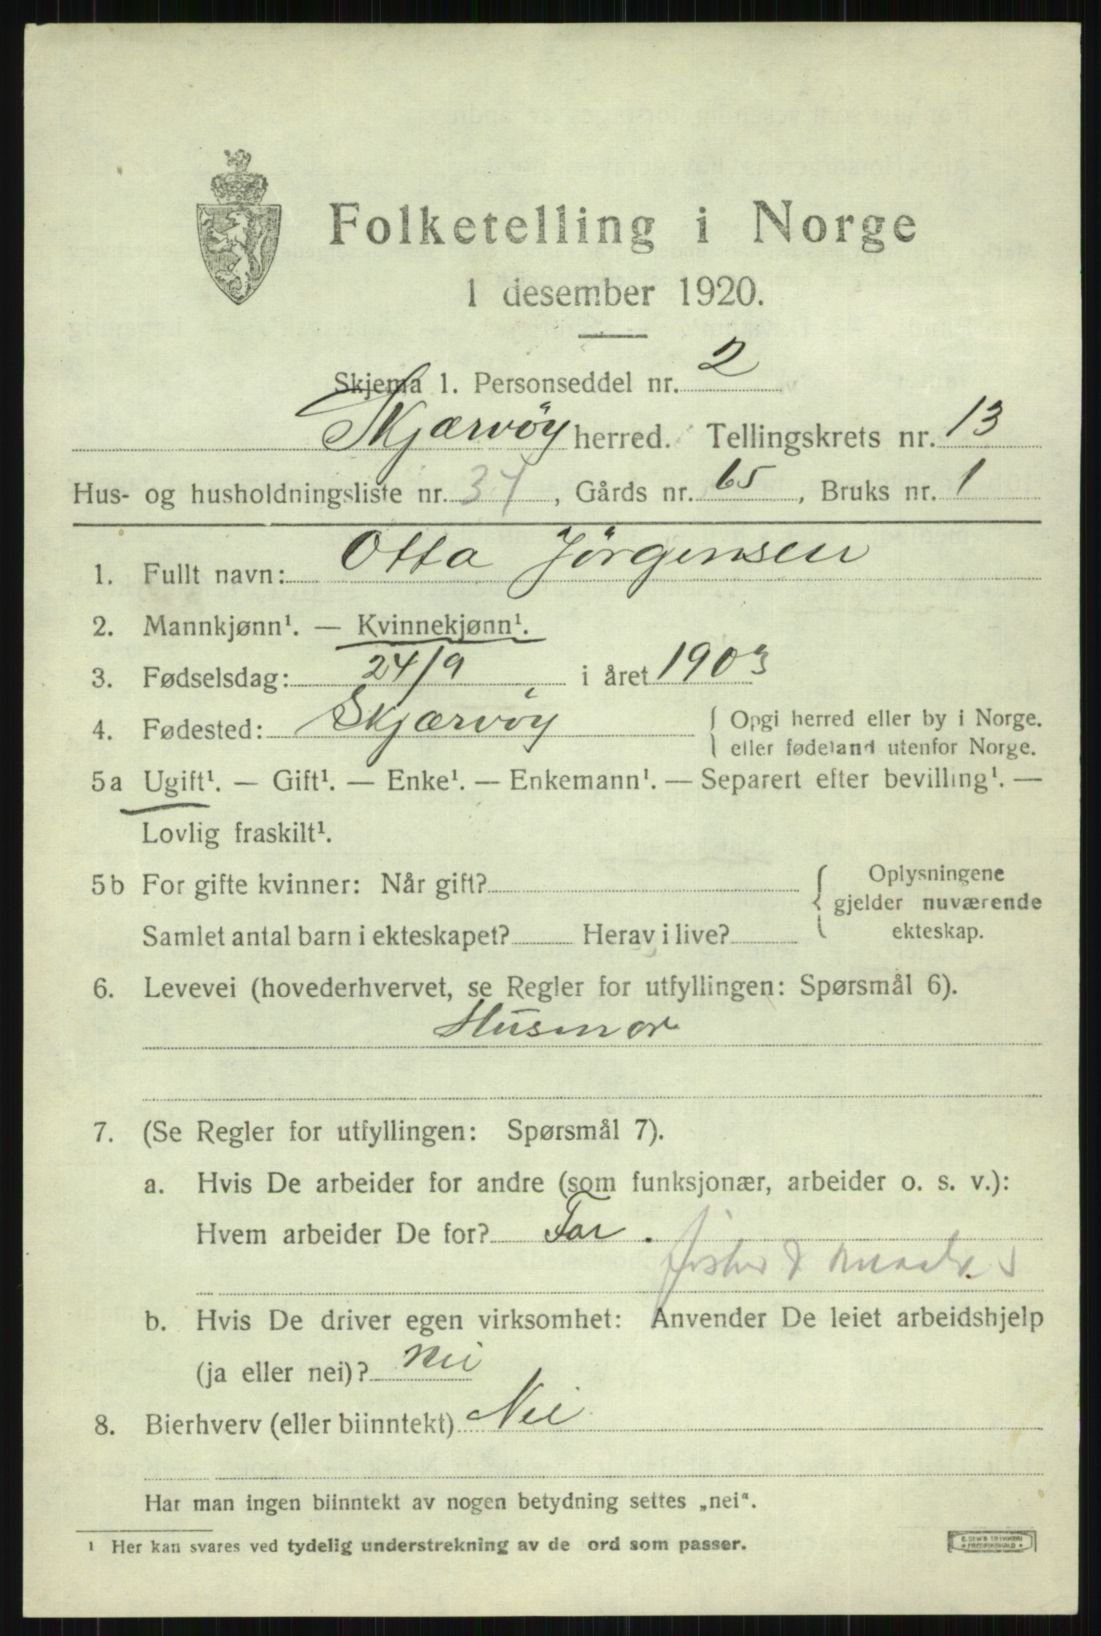 Folketelling i Norge
1 desember 1920.
Skjema 1. Personseddel nr. 2
Skjærvöy herred. Tellingskrets nr. 13
Hus- og husholdningsliste nr. 34, Gårds nr. 65, Bruks nr. 1
1. Fullt navn: Otta Jörgensen
2. Mannkjønn¹. — Kvinnekjønn¹.
3. Fødselsdag: 24/9 i året 1903
4. Fødested: Skjærvöy { Opgi herred eller by i Norge.
eller fødeland utenfor Norge.
5a Ugift¹. — Gift¹. — Enke¹. — Enkemann¹. — Separert efter bevilling¹. —
Lovlig fraskilt¹.
5b For gifte kvinner: Når gift? { Oplysningene
gjelder nuværende
Samlet antal barn i ekteskapet? Herav i live? ekteskap.
6. Levevei (hovederhvervet, se Regler for utfyllingen: Spørsmål 6).
Husmor
7. (Se Regler for utfyllingen: Spørsmål 7).
a. Hvis De arbeider for andre (som funksjonær, arbeider o. s. v.):
Hvem arbeider De for? Far.
b. Hvis De driver egen virksomhet: Anvender De leiet arbeidshjelp
(ja eller nei)? Nei
8. Bierhverv (eller biinntekt) Nei
Har man ingen biinntekt av nogen betydning settes „nei“.
¹ Her kan svares ved tydelig understrekning av de ord som passer.